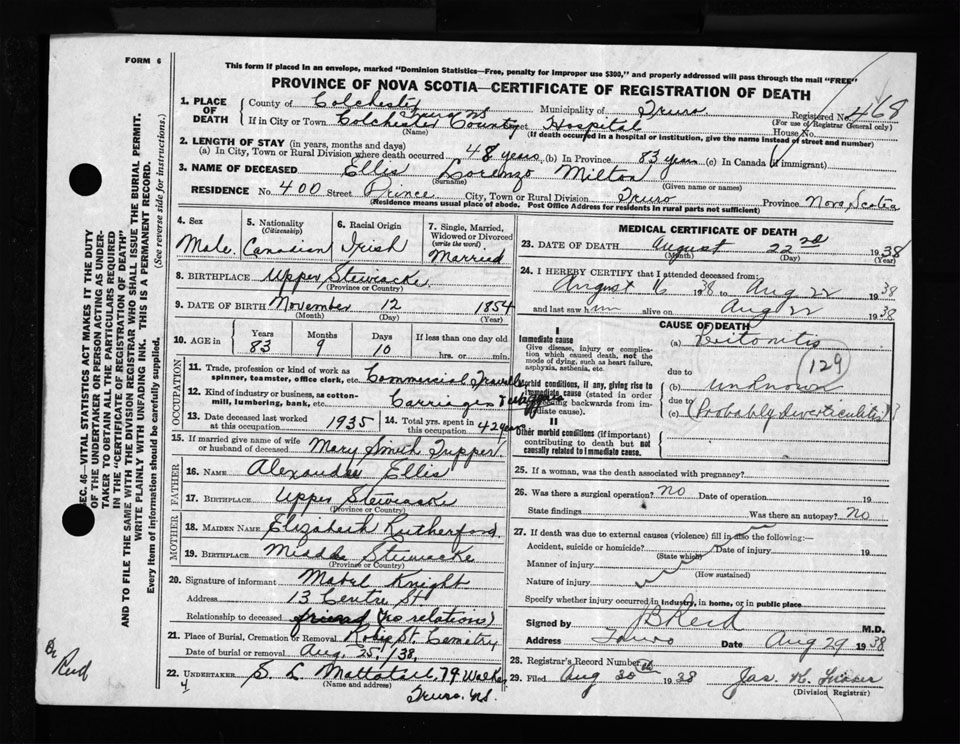 FORM 6
This form if placed in an envelope, marked "Dominion Statistics—Free, penalty for improper use $300," and properly addressed will pass through the mail "FREE"
PROVINCE OF NOVA SCOTIA—CERTIFICATE OF REGISTRATION OF DEATH
1. PLACE OF DEATH County of Colchester Municipality of Truro Registered No. 468
(For use of Registrar General only)
Truro NS
If in City or Town Colchester County Street Hospital House No.
(Name) (If death occurred in a hospital or institution, give the name instead of street and number)
2. LENGTH OF STAY (in years, months and days)
(a) In City, Town or Rural Division where death occurred 48 years (b) In Province 83 years (c) In Canada (if immigrant)
3. NAME OF DECEASED Ellis Lorenzo Milton
(Surname) (Given name or names)
RESIDENCE No. 400 Street Prince City, Town or Rural Division Truro Province Nova Scotia
(Residence means usual place of abode. Post Office Address for residents in rural parts not sufficient)
4. Sex Male
5. Nationality (Citizenship) Canadian
6. Racial Origin Irish
7. Single, Married, Widowed or Divorced (write the word) Married
8. BIRTHPLACE Upper Stewiacke
(Province or Country)
9. DATE OF BIRTH November 12 1854
(Month) (Day) (Year)
10. AGE in Years 83 Months 9 Days 10 If less than one day old hrs. or min.
OCCUPATION
11. Trade, profession or kind of work as spinner, teamster, office clerk, etc. Commercial Traveller
12. Kind of industry or business, as cotton-mill, lumbering, bank, etc. Carriages &
13. Date deceased last worked at this occupation 1935
14. Total yrs. spent in this occupation 42 years
15. If married give name of wife or husband of deceased Mary Smith Tupper
FATHER
16. NAME Alexander Ellis
17. BIRTHPLACE Upper Stewiacke
(Province or Country)
MOTHER
18. MAIDEN NAME Elizabeth Rutherford
19. BIRTHPLACE Middle Stewiacke
(Province or Country)
20. Signature of informant Mabel Knight
Address 13 Centre St
Relationship to deceased friend (no relations)
21. Place of Burial, Cremation or Removal Robie St. Cemetry
Date of burial or removal Aug. 25/38
22. UNDERTAKER S. L. Mattatall, 79 Walker
(Name and address)
Truro. NS.
MEDICAL CERTIFICATE OF DEATH
23. DATE OF DEATH August 22nd 1938
(Month) (Day) (Year)
24. I HEREBY CERTIFY that I attended deceased from:
August 16 1938 to Aug 22 1938
and last saw him alive on Aug 22 1938
CAUSE OF DEATH
I
Immediate cause
Give disease, injury or complication which caused death, not the mode of dying, such as heart failure, asphyxia, asthenia, etc.
(a) Peitonitis
due to
129
Morbid conditions, if any, giving rise to immediate cause (stated in order proceeding backwards from immediate cause).
(b) unknown
due to
(c) (Probably diverticulitis)
II
Other morbid conditions (if important) contributing to death but not causally related to immediate cause.
25. If a woman, was the death associated with pregnancy?
26. Was there a surgical operation? no Date of operation 19
State findings Was there an autopsy? No
27. If death was due to external causes (violence) fill in also the following:—
Accident, suicide or homicide? Date of injury 19
(State which)
Manner of injury
(How sustained)
Nature of injury
Specify whether injury occurred in industry, in home, or in public place
Signed by JB Reid M.D.
Address Truro Date Aug 29 1938
28. Registrar's Record Number
29. Filed Aug 30th 1938 Jas. K.
(Division Registrar)
SEC. 46—VITAL STATISTICS ACT MAKES IT THE DUTY
OF THE UNDERTAKER OR PERSON ACTING AS UNDER-
TAKER TO OBTAIN ALL THE PARTICULARS REQUIRED
IN THE "CERTIFICATE OF REGISTRATION OF DEATH"
AND TO FILE THE SAME WITH THE DIVISION REGISTRAR WHO SHALL ISSUE THE BURIAL PERMIT.
WRITE PLAINLY WITH UNFADING INK. THIS IS A PERMANENT RECORD.
Every item of information should be carefully supplied. (See reverse side for instructions.)
Dr Reid